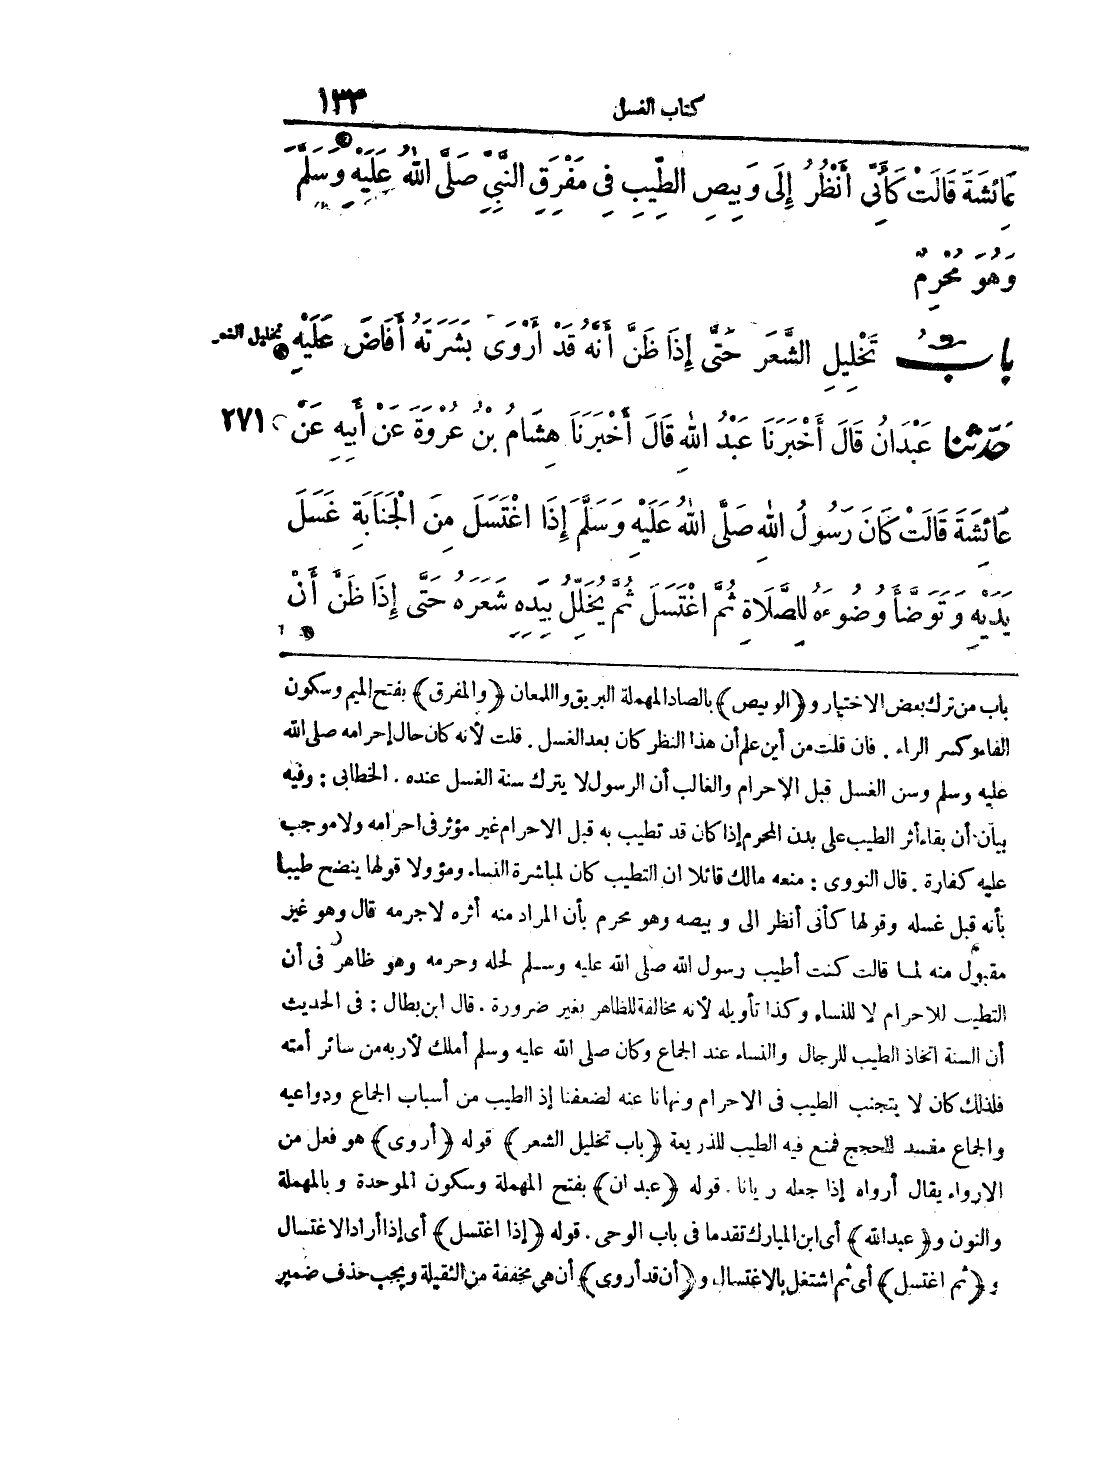 كتاب الغسل ١٣٣
عَائِشَةَ قَالَتْ كَأَنِّى أَنْظُرُ إِلَى وَبِيصِ الطِّيبِ فِى مَفْرِقِ النَّبِىِّ صَلَّى اللهُ عَلَيْهِ وَسَلَّمَ
وَهُوَ مُحْرِمٌ
بابُ تَخْلِيلِ الشَّعَرِ حَتَّى إِذَا ظَنَّ أَنَّهُ قَدْ أَرْوَى بَشَرَتَهُ أَفَاضَ عَلَيْهِ تخليل الشعر
حَدَّثنا عَبْدَانُ قَالَ أَخْبَرَنَا عَبْدُ اللهِ قَالَ أَخْبَرَنَا هِشَامُ بْنُ عُرْوَةَ عَنْ أَبِيهِ عَنْ ٢٧١
عَائِشَةَ قَالَتْ كَانَ رَسُولُ اللهِ صَلَّى اللهُ عَلَيْهِ وَسَلَّمَ إِذَا اغْتَسَلَ مِنَ الْجَنَابَةِ غَسَلَ
يَدَيْهِ وَتَوَضَّأَ وُضُوءَهُ لِلصَّلَاةِ ثُمَّ اغْتَسَلَ ثُمَّ يُخَلِّلُ بِيَدِهِ شَعَرَهُ حَتَّى إِذَا ظَنَّ أَنْ
باب من ترك بعض الاختيار و﴿الوبيص﴾ بالصاد المهملة البريق واللمعان ﴿والمفرق﴾ بفتح الميم وسكون
الفاء وكسر الراء . فان قلت من أين علم أن هذا النظر كان بعد الغسل . قلت لأنه كان حال إحرامه صلى الله
عليه وسلم وسن الغسل قبل الإحرام والغالب أن الرسول لا يترك سنة الغسل عنده . الخطابى : وفيه
بيان أن بقاء أثر الطيب على بدن المحرم إذا كان قد تطيب به قبل الاحرام غير مؤثر فى احرامه ولا موجب
عليه كفارة . قال النووى : منعه مالك قائلا ان التطيب كان لمباشرة النساء ومؤولا قولها ينضح طيبا
بأنه قبل غسله وقولها كأنى أنظر الى وبيصه وهو محرم بأن المراد منه أثره لاجرمه قال وهو غير
مقبول منه لما قالت كنت أطيب رسول الله صلى الله عليه وسلم لحله وحرمه وهو ظاهر فى أن
التطيب للاحرام لا للنساء وكذا تأويله لأنه مخالفة للظاهر بغير ضرورة . قال ابن بطال : فى الحديث
أن السنة اتخاذ الطيب للرجال والنساء عند الجماع وكان صلى الله عليه وسلم أملك لأربه من سائر أمته
فلذلك كان لا يتجنب الطيب فى الاحرام ونهانا عنه لضعفنا إذ الطيب من أسباب الجماع ودواعيه
والجماع مفسد للحجج فمنع فيه الطيب للذريعة ﴿باب تخليل الشعر﴾ قوله ﴿أروى﴾ هو فعل من
الارواء يقال أرواه إذا جعله ريانا . قوله ﴿عبدان﴾ بفتح المهملة وسكون الموحدة وبالمهملة
والنون و﴿عبدالله﴾ أى ابن المبارك تقدما فى باب الوحى . قوله ﴿إذا اغتسل﴾ أى إذا أراد الاغتسال
و﴿ثم اغتسل﴾ أى ثم اشتغل بالاغتسال و﴿أن قد أروى﴾ أن هى مخففة من الثقيلة ويجب حذف ضمير